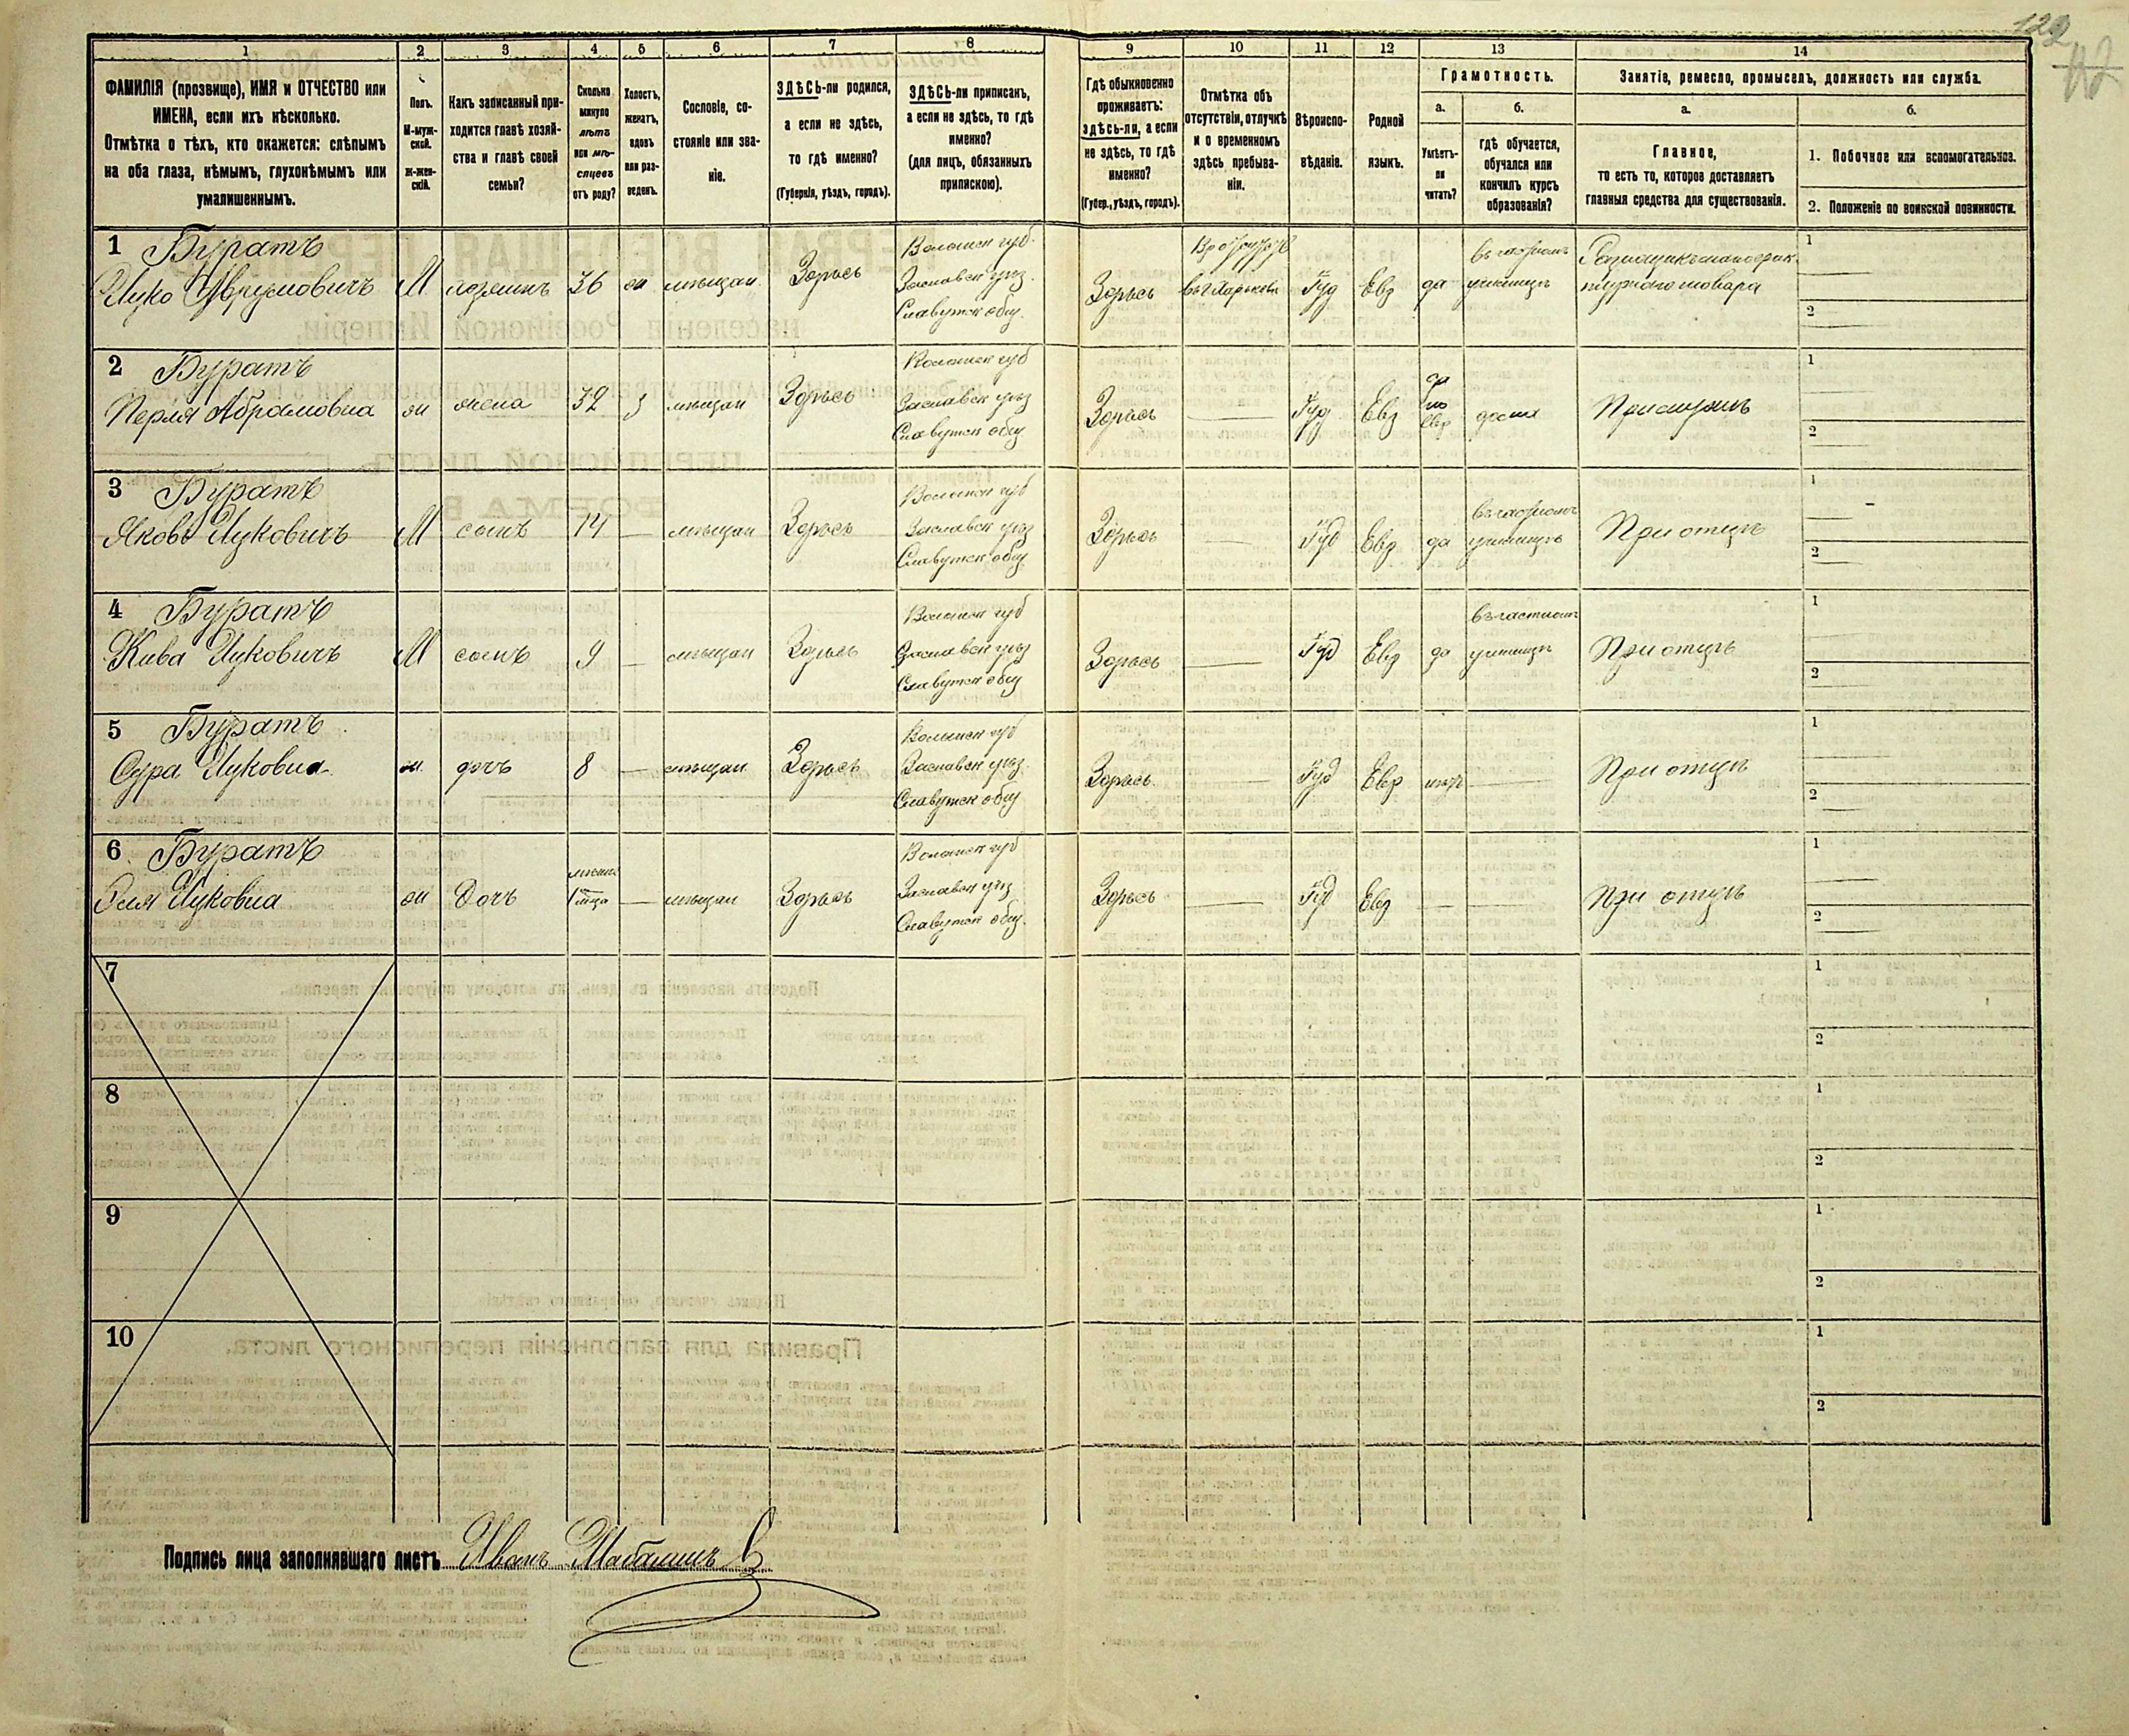 122
112
1 2 3 4 5 6 7 8 9 10 11 12 13 14
ФАМИЛІЯ (прозвище), ИМЯ и ОТЧЕСТВО или
ИМЕНА, если ихъ нѣсколько.
Отмѣтка о тѣхъ, кто окажется: слѣпымъ
на оба глаза, нѣмымъ, глухонѣмымъ или
умалишеннымъ.
Полъ.
М-муж-
ской.
ж-жен-
скій.
Какъ записанный при-
ходится главѣ хозяй-
ства и главѣ своей
семьи?
Сколько
минуло
лѣтъ
или мѣ-
сяцевъ
отъ роду?
Холостъ,
женатъ,
вдовъ
или раз-
веденъ.
Сословіе, со-
стояніе или зва-
ніе.
ЗДѢСЬ-ли родился,
а если не здѣсь,
то гдѣ именно?
(Губернія, уѣздъ, городъ).
ЗДѢСЬ-ли приписанъ,
а если не здѣсь, то гдѣ
именно?
(для лицъ, обязанныхъ
припискою).
Гдѣ обыкновенно
проживаетъ:
здѣсь-ли, а если
не здѣсь, то гдѣ
именно?
(Губер., уѣздъ, городъ).
Отмѣтка объ
отсутствіи, отлучкѣ
и о временномъ
здѣсь пребыва-
ніи.
Вѣроиспо-
вѣданіе.
Родной
языкъ.
Грамотность.
а.
Умѣетъ-
ли
читать?
б.
гдѣ обучается,
обучался или
кончилъ курсъ
образованія?
Занятіе, ремесло, промыселъ, должность или служба.
а.
Главное,
то есть то, которое доставляетъ
главныя средства для существованія.
б.
1. Побочное или вспомогательное.
2. Положеніе по воинской повинности.
1 Буратъ
Ицко Аврумовичъ М хозяинъ 36 ж мѣщан Здѣсь
Волынск губ.
Заславск уѣз.
Славутск общ.
Здѣсь
въ г Харьковѣ
Іуд Евр да
въ частномъ
училищѣ
1
2
2 Буратъ
Перля Абрамовна ж жена 32 з мѣщан Здѣсь
Волынск губ
Заславск уѣз
Славутск общ
Здѣсь — Іуд Евр
да
по
Евр
дома
При мужѣ
1
2
3 Буратъ
Яковъ Ицковичъ М сынъ 14 — мѣщан Здѣсь
Волынск губ
Заславск уѣз
Славутск общ
Здѣсь — Іуд Евр да
въ частномъ
училищѣ
При отцѣ
1
2
4 Буратъ
Кива Ицковичъ М сынъ 9 — мѣщан Здѣсь
Волынск губ
Заславск уѣз
Славутск общ
Здѣсь — Іуд Евр да
въ частномъ
училищѣ
При отцѣ
1
2
5 Буратъ
Сура Ицковна ж. дочь 8 — мѣщан Здѣсь
Волынск губ
Заславск уѣз
Славутск общ
Здѣсь — Іуд Евр нѣтъ —
При отцѣ
1
2
6 Буратъ
Ицковна ж Дочь — мѣщан Здѣсь
Волынск губ
Заславск уѣз
Славутск общ.
Здѣсь — Іуд Евр — —
При отцѣ
1
2
7
1
2
8
1
2
9
1
2
10
1
2
Подпись лица заполнявшаго листъ Иванъ